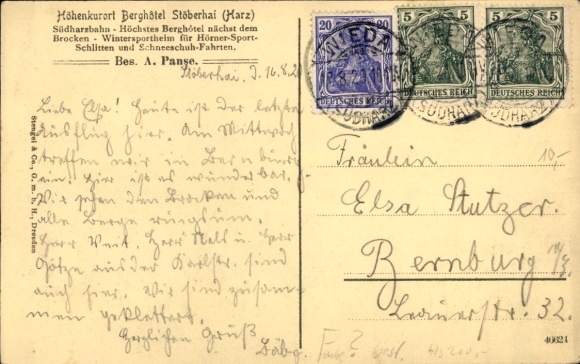 Höhenkurort Berghôtel Stöberhai (Harz)
Südharzbahn - Höchstes Berghôtel nächst dem
Brocken - Wintersportheim für Hörner-Sport-
Schlitten und Schneeschuh-Fahrten.
Bes. A. Panse.
Stöberhai, d. 16.8.20
Liebe Elsa! Heute ist der letzte
Ausflug hier. Am Mittwoch
treffen wir in Bernburg
ein. Hier ist es wunderbar.
Wir sehen den Brocken und
alle Berge ringsum.
Herr Veit, Herr u. Herr
Götze aus der Karlstr. sind
auch hier. Wir sind zusam-
men geklettert.
Herzlichen Gruß
Stengel & Co., G. m. b. H., Dresden
20 20
DEUTSCHES REICH
5 5
DEUTSCHES REICH
5 5
DEUTSCHES REICH
WIEDA
(SÜDHARZ)
WIEDA
(SÜDHARZ)
Fräulein
10,-
Elsa Stutzer.
Bernburg
Leauerstr. 32.
40624